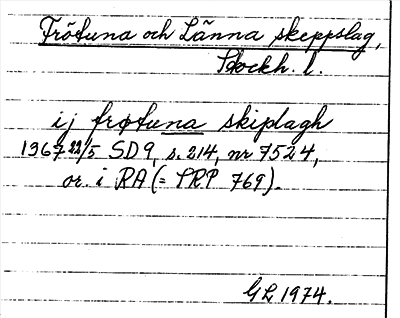 Frötuna och Länna skeppslag,
Stockh. l.
ij frøtuna skiplagh
1367 22/5 SD 9, s. 214, nr 7524,
or. i RA (= SRP 769).
GL 1974.